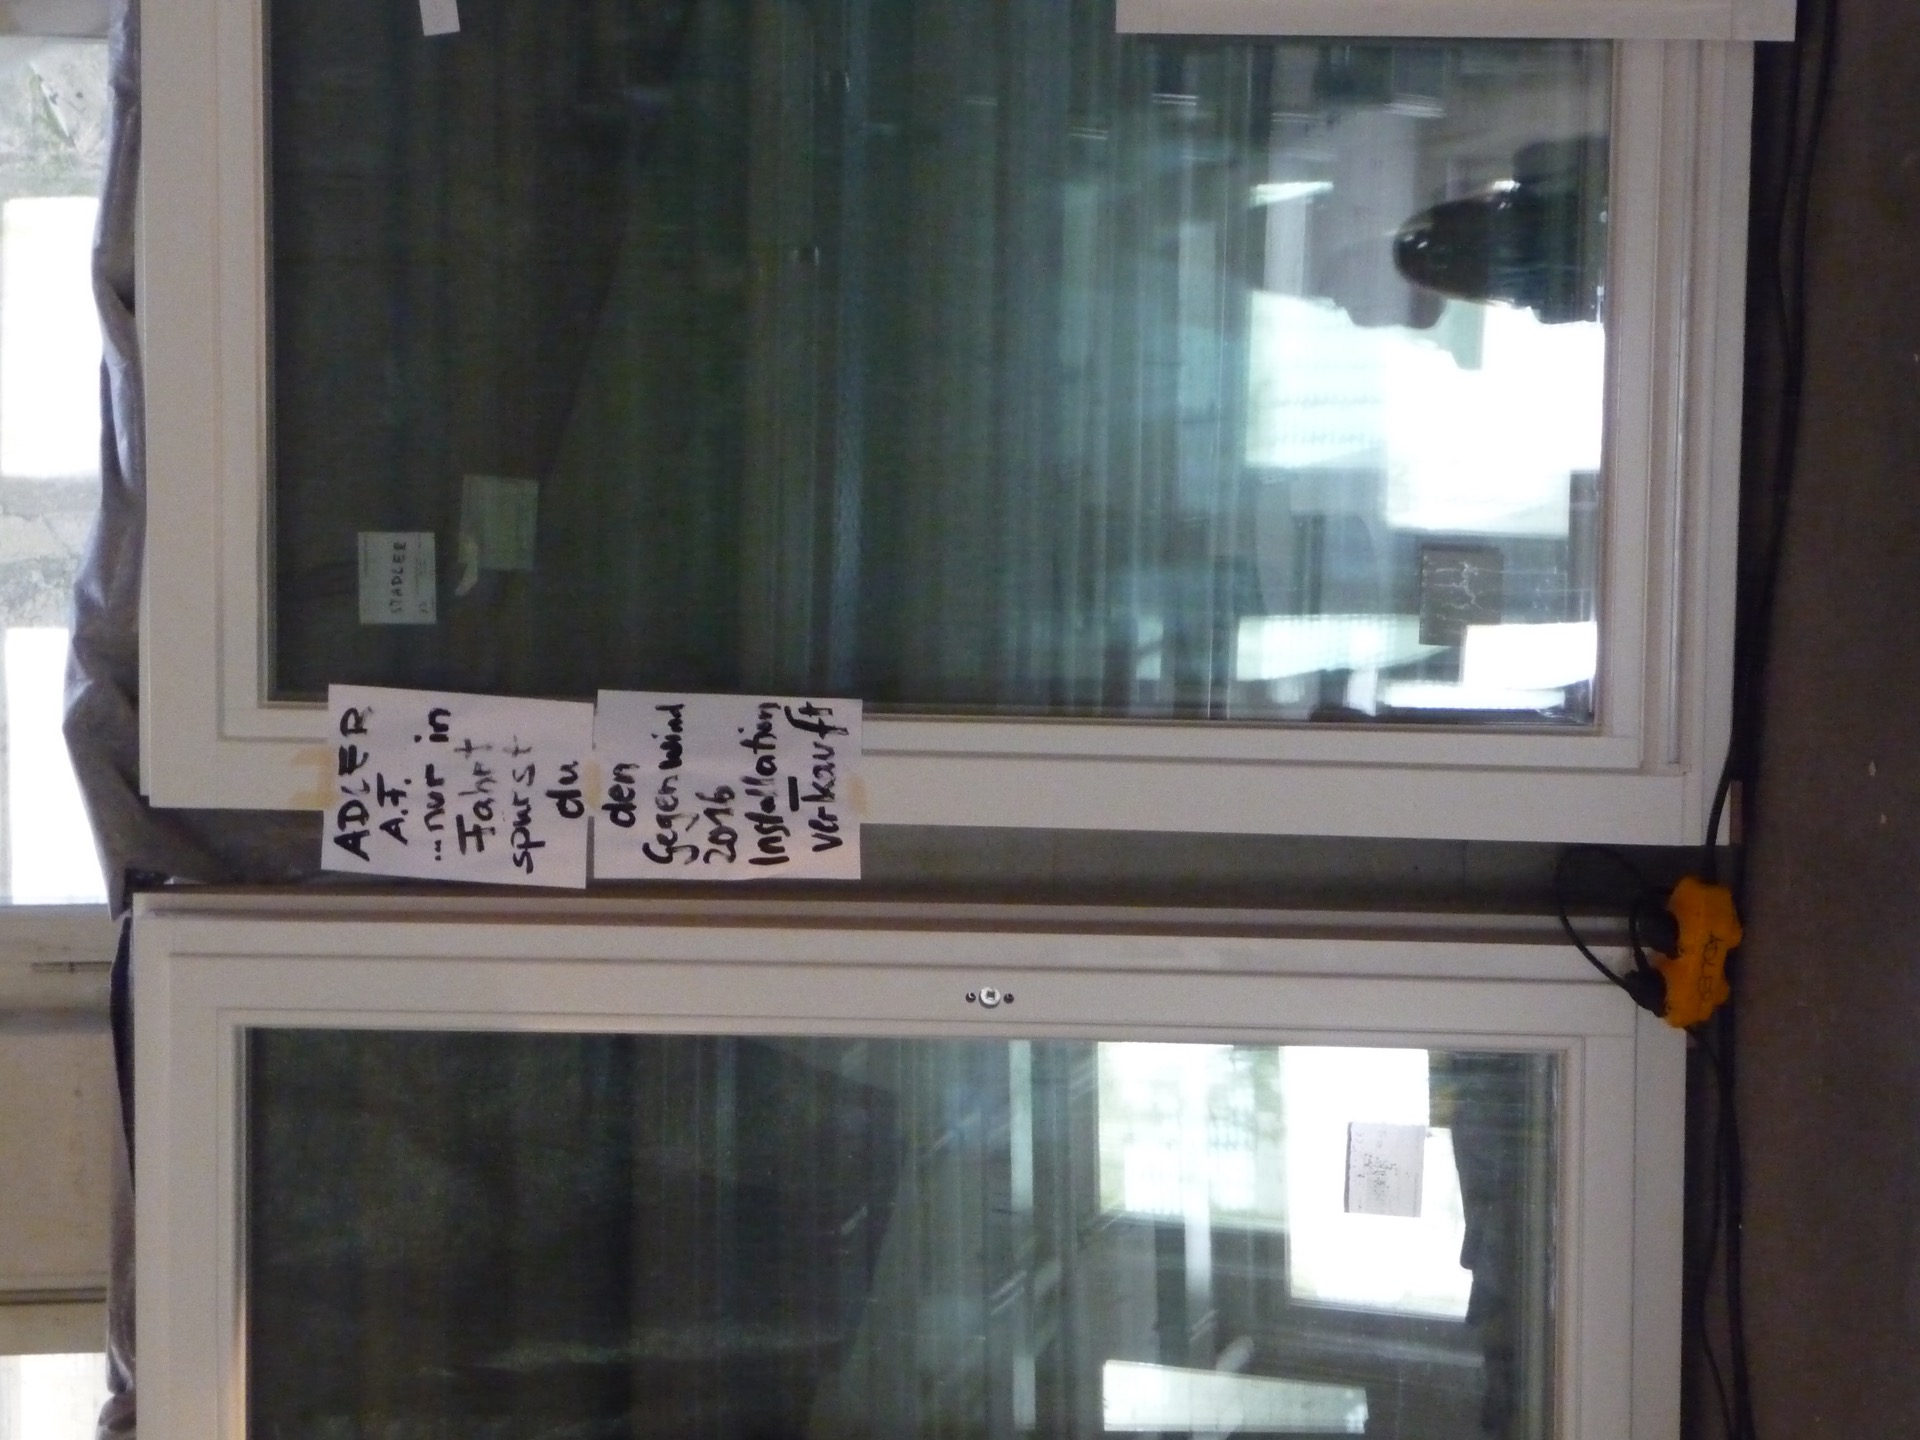 ADLER
A.F.
...nur in
Fahrt
spürst
du
den
Gegenwind
2016
Installation
verkauft
STADLER
ADLER